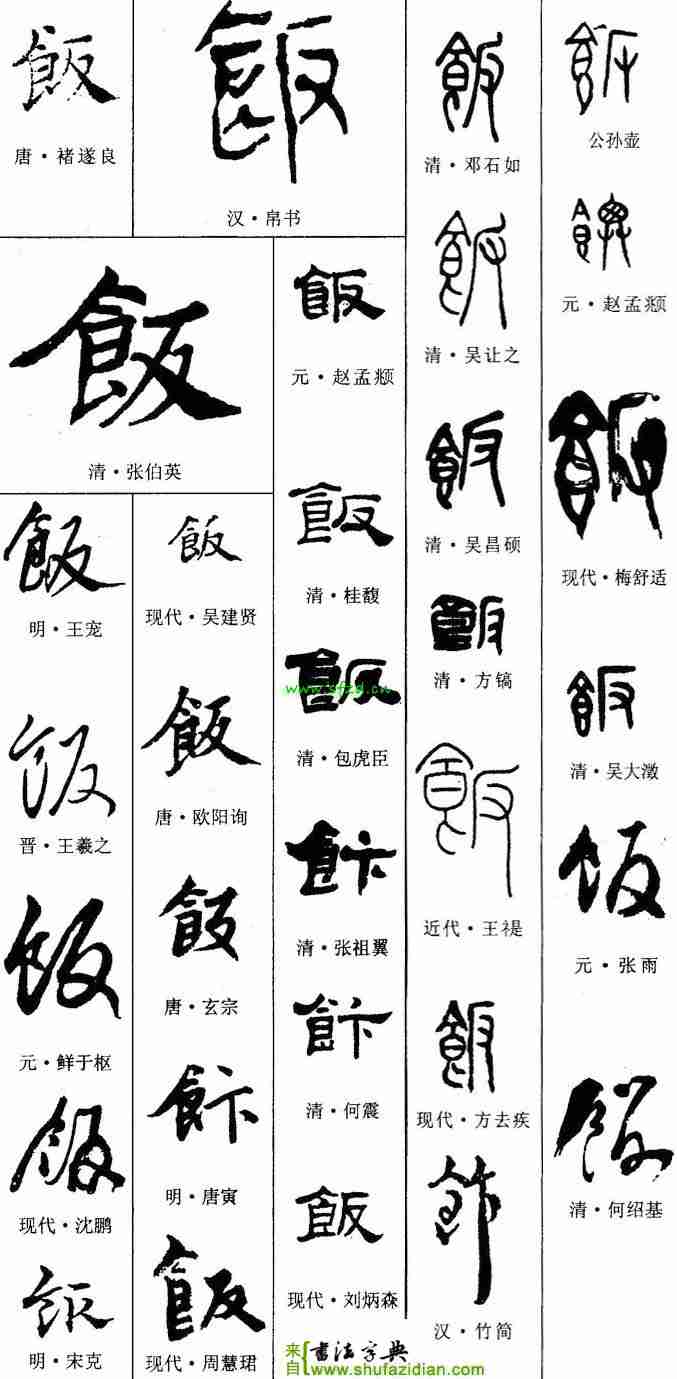 飯
唐·褚遂良
飯
汉·帛书
飯
清·张伯英
飯
明·王宠
飯
晋·王羲之
飯
元·鲜于枢
飯
现代·沈鹏
飯
明·宋克
飯
现代·吴建贤
飯
唐·欧阳询
飯
唐·玄宗
飰
明·唐寅
飯
现代·周慧珺
飯
元·赵孟頫
飯
清·桂馥
飯
www.sfzd.cn
清·包虎臣
飰
清·张祖翼
飰
清·何震
飯
现代·刘炳森
飯
清·邓石如
飯
清·吴让之
飯
清·吴昌硕
飯
清·方镐
飯
近代·王禔
飯
现代·方去疾
汉·竹简
飯
公孙壶
元·赵孟頫
飯
现代·梅舒适
飯
清·吴大澂
飯
元·张雨
飯
清·何绍基
来自 书法字典
www.shufazidian.com